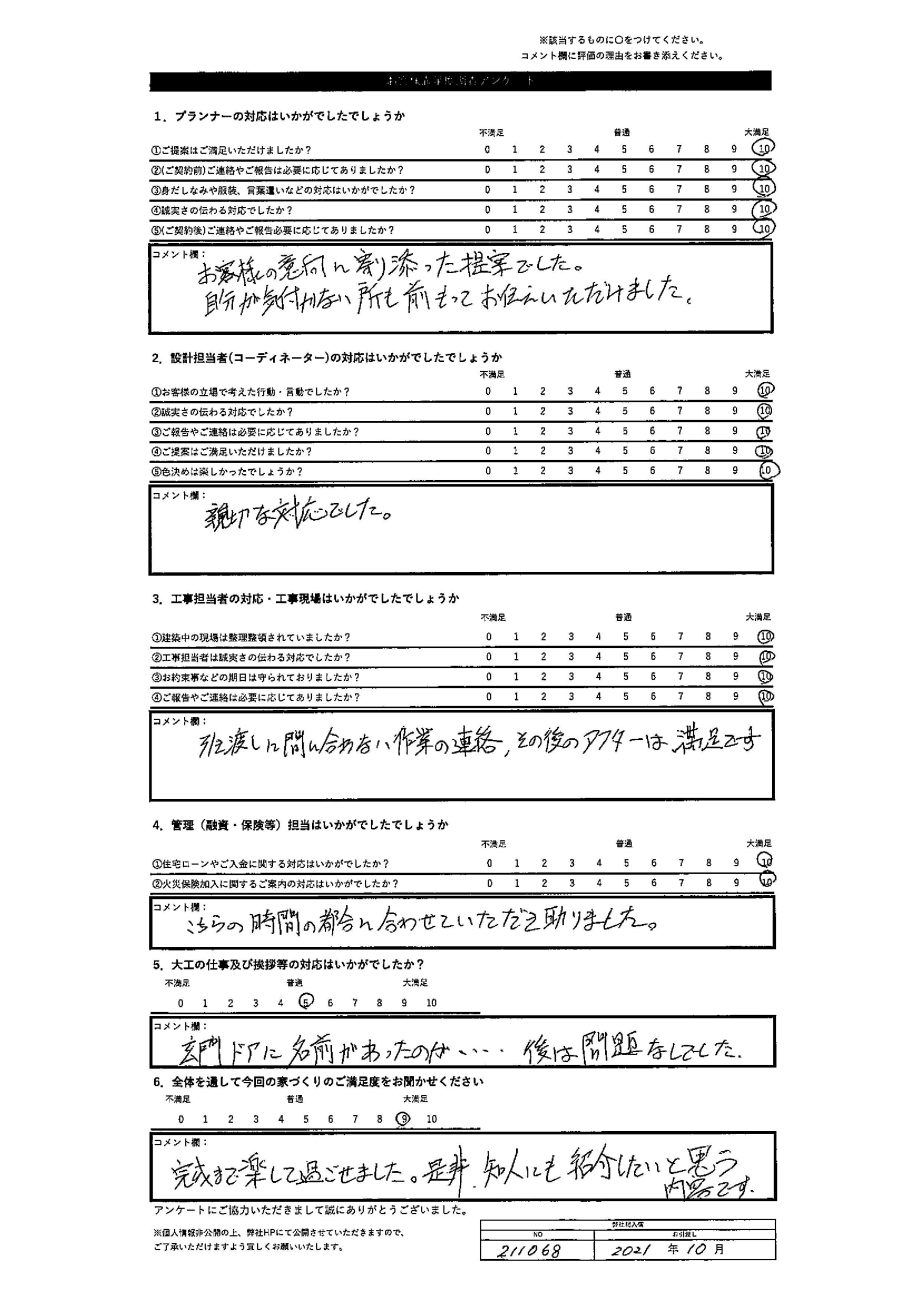 ※該当するものに〇をつけてください。
コメント欄に評価の理由をお書き添えください。
アンケート
1．プランナーの対応はいかがでしたでしょうか
不満足 普通 大満足
①ご提案はご満足いただけましたか？ 0 1 2 3 4 5 6 7 8 9 10
②(ご契約前)ご連絡やご報告は必要に応じてありましたか？ 0 1 2 3 4 5 6 7 8 9 10
③身だしなみや服装、言葉遣いなどの対応はいかがでしたか？ 0 1 2 3 4 5 6 7 8 9 10
④誠実さの伝わる対応でしたか？ 0 1 2 3 4 5 6 7 8 9 10
⑤(ご契約後)ご連絡やご報告必要に応じてありましたか？ 0 1 2 3 4 5 6 7 8 9 10
コメント欄：
お客様の意向に寄り添った提案でした。
自分が気付かない所も前もってお伝えいただけました。
2．設計担当者(コーディネーター)の対応はいかがでしたでしょうか
不満足 普通 大満足
①お客様の立場で考えた行動・言動でしたか？ 0 1 2 3 4 5 6 7 8 9 10
②誠実さの伝わる対応でしたか？ 0 1 2 3 4 5 6 7 8 9 10
③ご報告やご連絡は必要に応じてありましたか？ 0 1 2 3 4 5 6 7 8 9 10
④ご提案はご満足いただけましたか？ 0 1 2 3 4 5 6 7 8 9 10
⑤色決めは楽しかったでしょうか？ 0 1 2 3 4 5 6 7 8 9 10
コメント欄：
親切な対応でした。
3．工事担当者の対応・工事現場はいかがでしたでしょうか
不満足 普通 大満足
①建築中の現場は整理整頓されていましたか？ 0 1 2 3 4 5 6 7 8 9 10
②工事担当者は誠実さの伝わる対応でしたか？ 0 1 2 3 4 5 6 7 8 9 10
③お約束事などの期日は守られておりましたか？ 0 1 2 3 4 5 6 7 8 9 10
④ご報告やご連絡は必要に応じてありましたか？ 0 1 2 3 4 5 6 7 8 9 10
コメント欄：
引渡しに間に合わない作業の連絡，その後のアフターは満足です
4．管理（融資・保険等）担当はいかがでしたでしょうか
不満足 普通 大満足
①住宅ローンやご入金に関する対応はいかがでしたか？ 0 1 2 3 4 5 6 7 8 9 10
②火災保険加入に関するご案内の対応はいかがでしたか？ 0 1 2 3 4 5 6 7 8 9 10
コメント欄：
こちらの時間の都合に合わせていただき助りました。
5．大工の仕事及び挨拶等の対応はいかがでしたか？
不満足 普通 大満足
0 1 2 3 4 5 6 7 8 9 10
コメント欄：
玄関ドアに名前があったのは‥‥ 後は問題なしでした．
6．全体を通して今回の家づくりのご満足度をお聞かせください
不満足 普通 大満足
0 1 2 3 4 5 6 7 8 9 10
コメント欄：
完成まで楽して過ごせました。是非，知人にも紹介したいと思う
内容です．
アンケートにご協力いただきまして誠にありがとうございました。
※個人情報非公開の上、弊社HPにて公開させていただきますので、
ご了承いただけますよう宜しくお願いいたします。
弊社記入欄
NO お引渡し
211068 2021 年 10 月